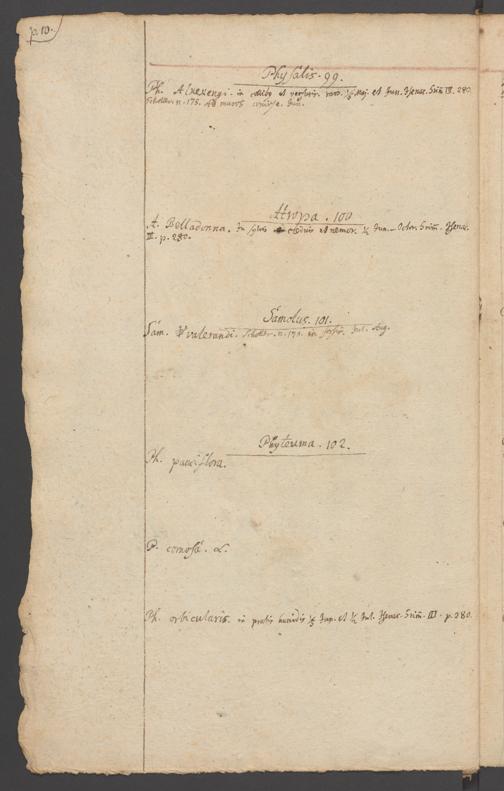 p. 10.
Physalis. 99.
Ph. Alkekengi. in et ½ Maj. et Jun. Jenae. III. 280.
Scholler. n. 175. Ad muros Jun.
Atropa. 100
A. Belladonna. In sylvis et nemor. ½ Jun. - Octbr. Jenae.
III. p. 280.
Samolus. 101.
Sam. valerandi. Scholler. n. 171. in Jul. Aug.
Phyteuma. 102.
Ph. pauciflora.
P. comosa. α.
Ph. orbicularis. in pratis humidis ½ Jun. et ½ Jul. Jenae. III. p. 280.